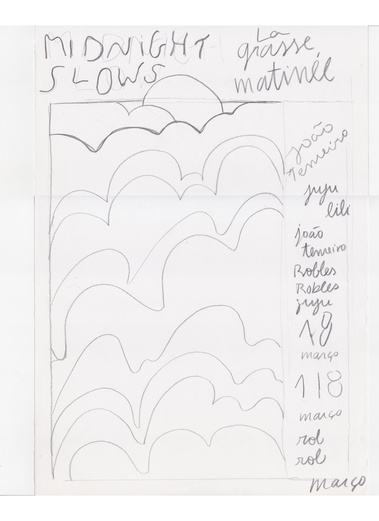 MIDNIGHT
SLOWS
La
grasse
matinée
João
Terreiro
juju
lili
joão
terreiro
Robles
Robles
juju
18
março
118
março
rol
rol
março